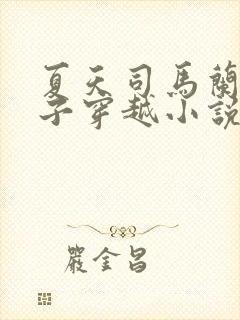 夏天司馬蘭
子穿越小說
嚴金昌